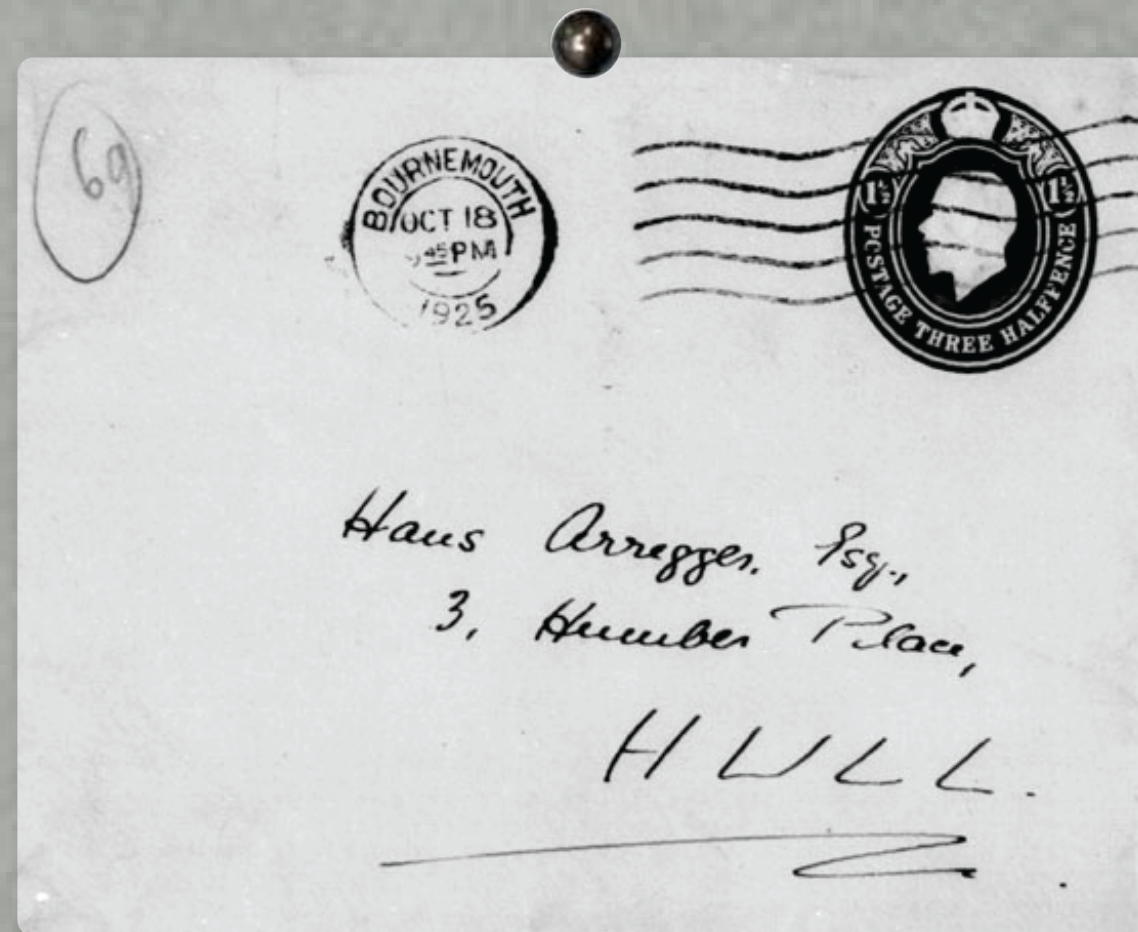 69
BOURNEMOUTH
OCT 18
45 PM
1925
1½ 1½
POSTAGE THREE HALFPENCE
Hans Arregger. Esq.,
3, Humber Place,
HULL.